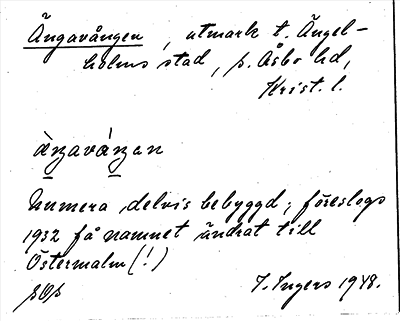 Ängavången, utmark t. Ängel-
holms stad, s. Åsbo hd,
Krist. l.
àŋavàŋan
Numera delvis bebyggd; föreslogs
1932 få namnet ändrat till
Östermalm (!)
I. Ingers 1948.